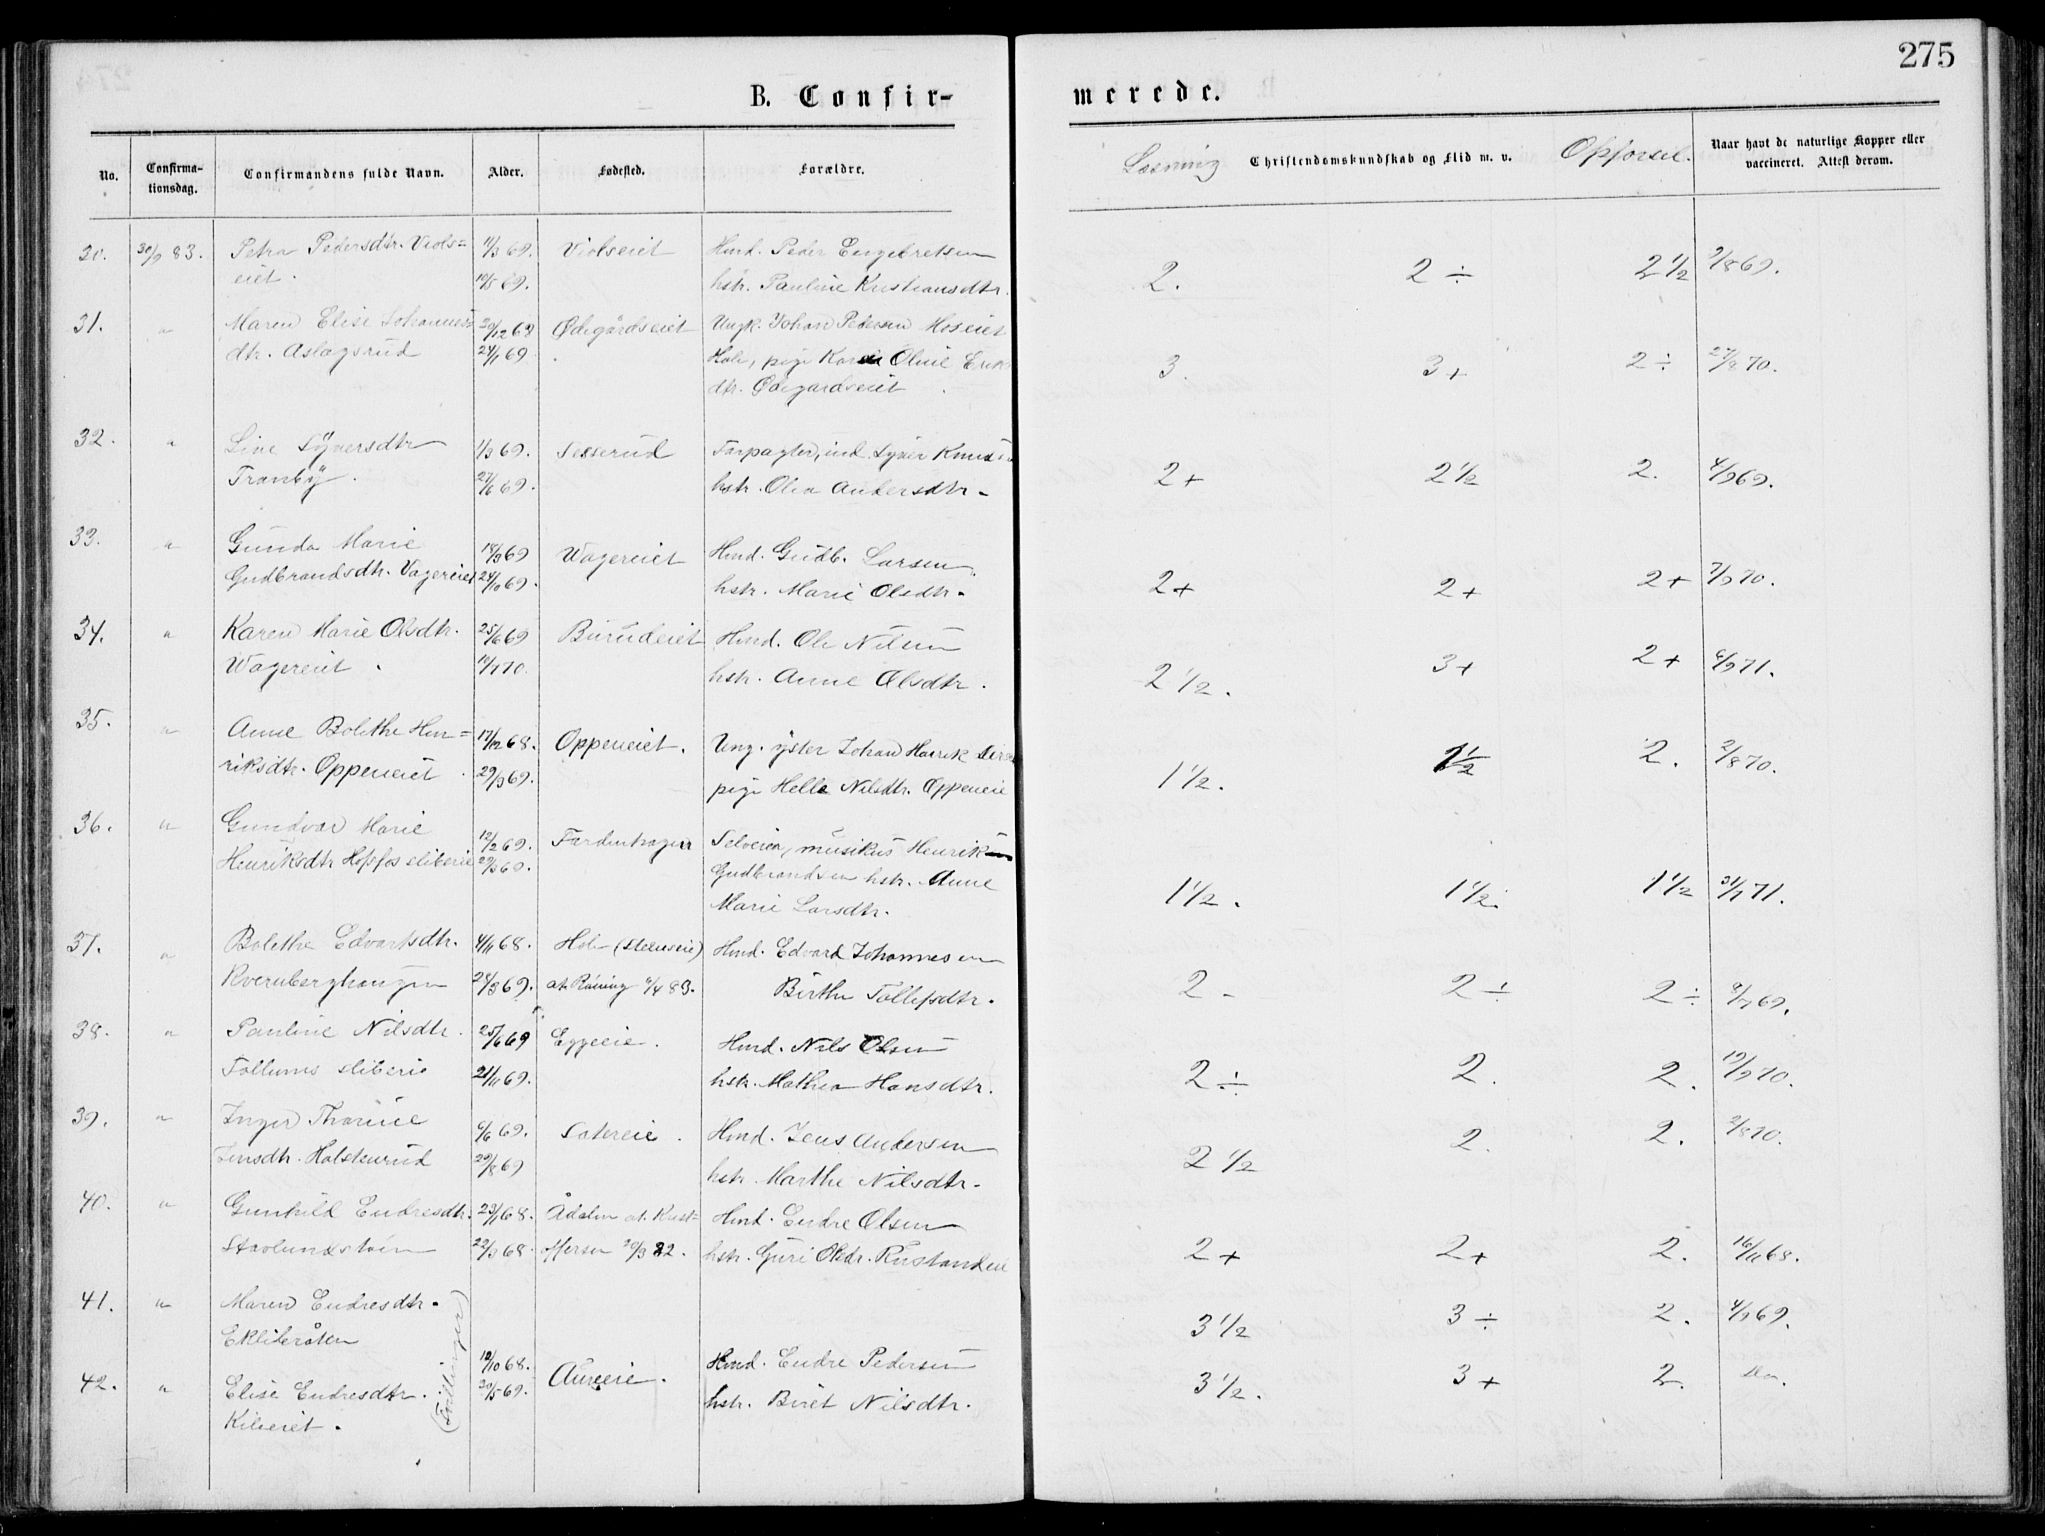 275
B. Confir-
merede.
No.
Confirma-
tionsdag.
Confirmandens fulde Navn.
Alder.
Fødested.
Forældre.
Læsning
Christendomskundskab og Flid m. v.
Opførsel.
Naar havt de naturlige Kopper eller
vaccineret. Attest derom.
30. 30/9 83. Petra Pedersdtr. Viols= 11/3 69. Violseiet Hmd. Peder Engebretsen
eiet. 10/5 69. hstr. Pauline Kristiansdtr.
2. 2 ÷ 2 1/2 2/8 69.
31. " Maren Elise Johannes 30/12 68 Ødegårdseiet Ungk. Johan Pedersen Moseiet
dtr. Aslagsrud 24/1 69. Hole, pige Karen Oline Erik
dtr. Ødegardseiet.
3. 3+ 2 ÷ 27/8 70.
32. " Line Syversdtr 1/3 69. Sesserud Forpagter, ind. Syver Knudsen
Tranby. 27/6 69. hstr. Olea Andersdtr.
2+ 2 1/2 2. 4/9 69.
33. " Gunda Marie 18/9 69 Wagereiet Hmd. Gudb. Larsen
Gudbrandsdtr. Vagereiet 24/10 69. hstr. Marie Olsdtr.
2+ 2+ 2+ 7/9 70.
34. " Karen Marie Olsdtr. 25/6 69 Buruderiet Hmd. Ole Nilsen
Wagereiet. 10/1 70. hstr. Anne Olsdtr.
2 1/2. 3+ 2+ 6/9 71.
35. " Anne Bolethe Hen= 17/12 68. Oppeneiet. Ung. yster Johan Henrik
riksdtr. Oppeneiet. 29/3 69. pige Helle Nilsdtr. Oppeneie
1 1/2. 1 1/2 2. 2/8 70.
36. " Gundvor Marie 12/2 69. Fardenhagen Selveier, musikus Henrik
Henriksdtr Hofsfos sliberie 29/3 69. Gudbrandsen hstr. Anne
Marie Larsdtr.
1 1/2. 1 1/2. 1 1/2 31/7 71.
37. " Bolethe Edvartsdtr. 4/11 68. Hole (Steenseie) Hmd. Edvard Johannesen
Kvernberghaugen 24/3 69. at. 4/4 83. Birthe Tollefsdtr.
2 - 2 ÷ 2 ÷ 9/7 69.
38. " Pauline Nilsdtr. 25/6 69 Eggeeie. Hmd. Nils Olsen
Follums sliberie 21/11 69. hstr. Mathea Hansdtr.
2 ÷ 2. 2. 19/9 70.
39. " Inger Thorine 6/6 69. Satereie. Hmd. Jens Andersen
Jensdtr. Holstenrud 29/8 69 hstr. Marthe Nilsdtr.
2 1/2 2. 2. 2/8 70.
40. " Gunhild Endresdtr. 23/1 68. Ådalen at. Krist= Hmd. Endre Olsen
22/3 68. offersen 20/3 82. hstr. Guri Olsdr. Rustandeie
2+ 2+ 2. 16/11 68.
41. " Maren Endresdtr.
Ekliteråken
3 1/2 3 ÷ 2. 4/9 69.
(Tvillinger)
10/10 68. Aureeie. Hmd. Endre Pedersen
42. " Elise Endresdtr. 30/5 69. hstr. Biret Nilsdtr.
Kileeiet.
3 1/2. 3+ 2. Do.